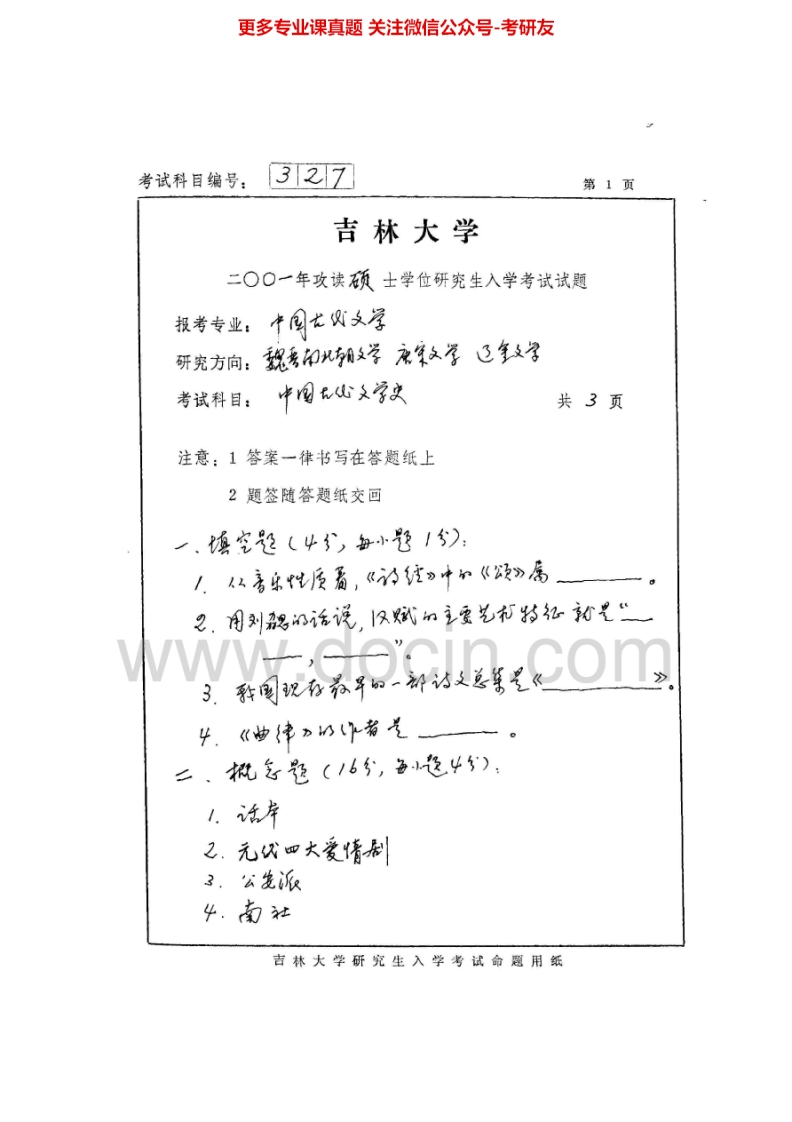 更多专业课真题 关注微信公众号-考研友
考试科目编号： 327
第 1 页
吉林大学
二〇〇一年攻读硕士学位研究生入学考试试题
报考专业：中国古代文学
研究方向：魏晋南北朝文学 唐宋文学 辽金文学
考试科目：中国古代文学史
共 3 页
注意：1 答案一律书写在答题纸上
2 题签随答题纸交回
一、填空题（4分，每小题1分）：
1. 从音乐性质看，《诗经》中的《颂》属________。
2. 用刘勰的话说，汉赋的主要艺术特征就是“__
____，______”。
3. 我国现存最早的一部诗文总集是《________》。
4. 《曲律》的作者是________。
二、概念题（16分，每小题4分）：
1. 话本
2. 元代四大爱情剧
3. 公安派
4. 南社
吉林大学研究生入学考试命题用纸
www.docin.com